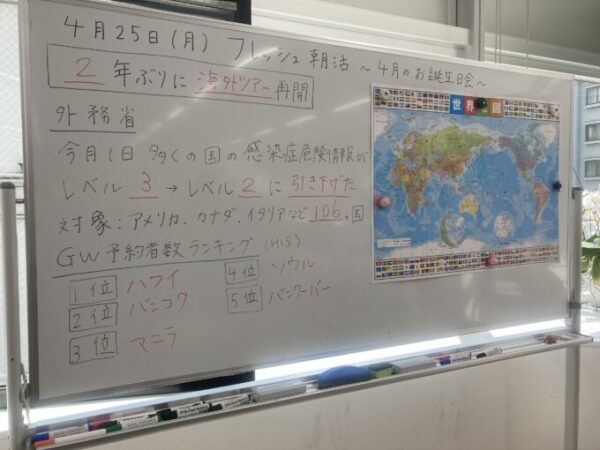 4月25日(月) フレッシュ朝活 ~4月のお誕生日会~
2年ぶりに海外ツアー再開
外務省
今月1日 多くの国の感染症危険情報が
レベル3→レベル2に引き下げた
対象:アメリカ、カナダ、イタリアなど106ヵ国
GW予約者数ランキング (HIS)
1位 ハワイ
2位 バンコク
3位 マニラ
4位 ソウル
5位 バンクーバー
世界地図